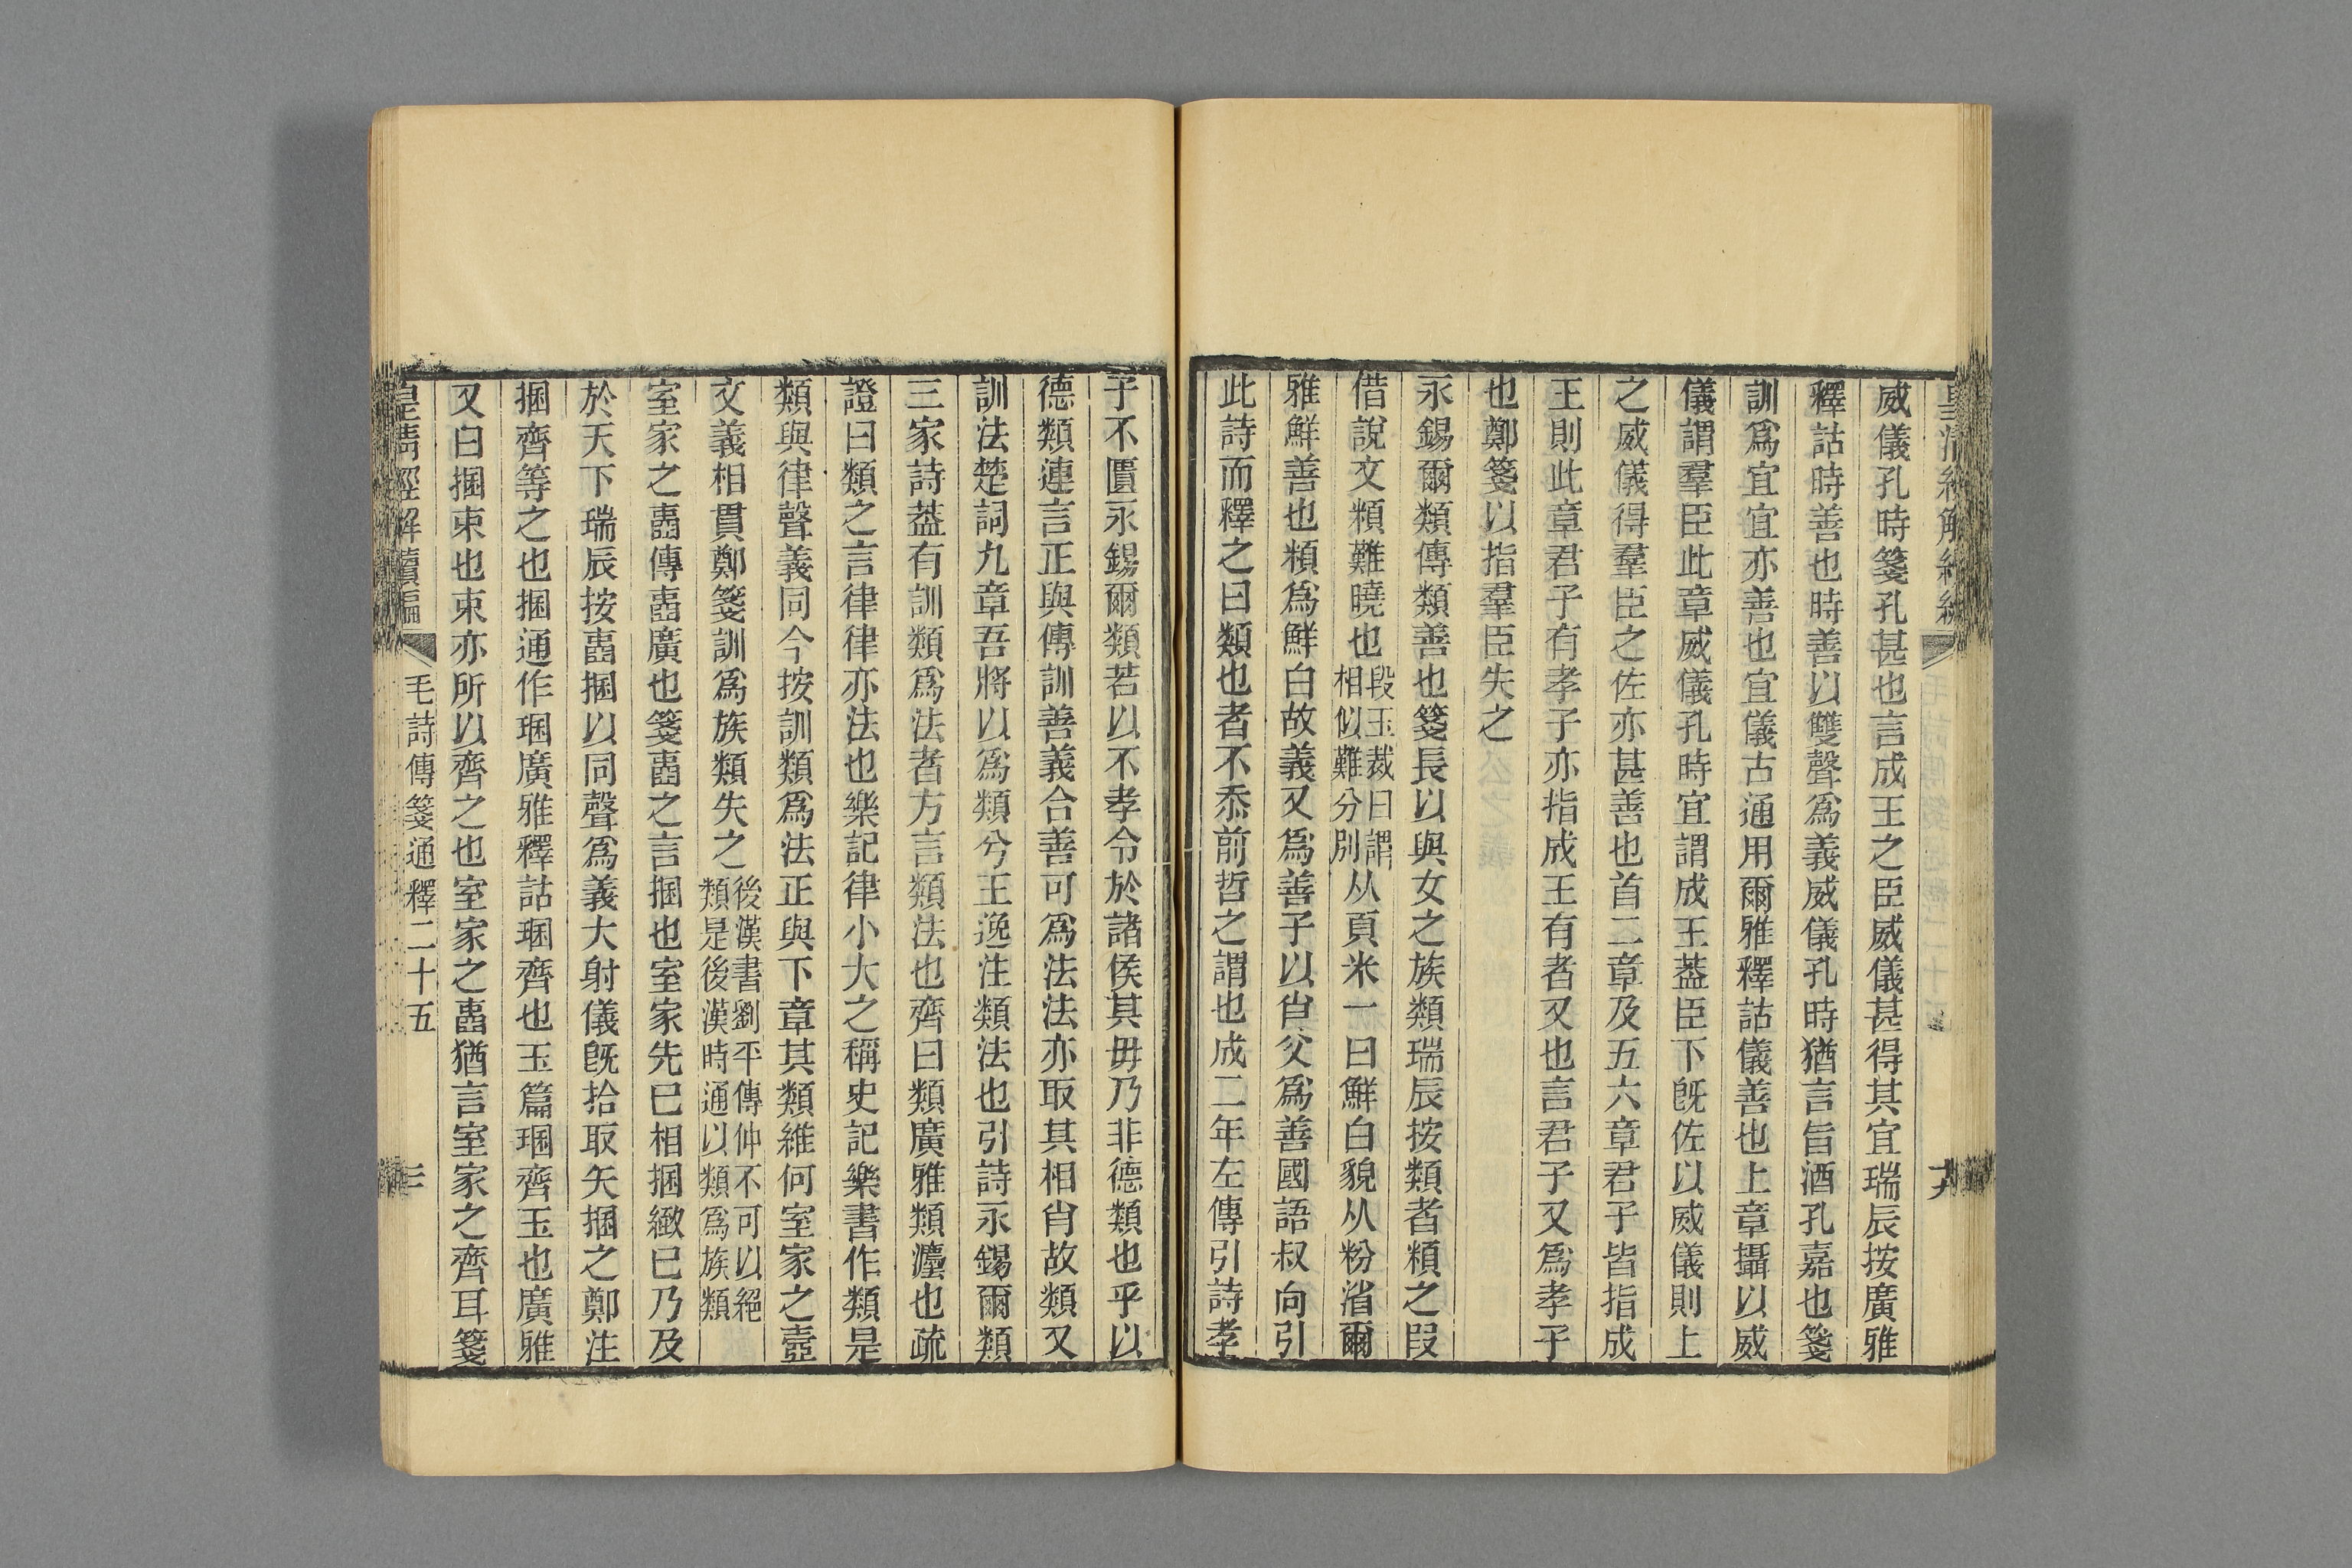 威儀孔時箋孔甚也言成王之臣威儀甚得其宜瑞辰按廣雅
釋詁時善也時善以雙聲爲義威儀孔時猶言旨酒孔嘉也箋
訓爲宜宜亦善也宜儀古通用爾雅釋詁儀善也上章攝以威
儀謂羣臣此章威儀孔時宜謂成王葢臣下旣佐以威儀則上
之威儀得羣臣之佐亦甚善也首二章及五六章君子皆指成
王則此章君子有孝子亦指成王有者又也言君子又爲孝子
也鄭箋以指羣臣失之
永錫爾類傳類善也箋長以與女之族類瑞辰按類者頪之叚
借說文頪難曉也段玉裁曰謂相似難分別从頁米一曰鮮白貌从粉省爾
雅鮮善也頪爲鮮白故義又爲善子以肖父爲善國語叔向引
此詩而釋之曰類也者不忝前哲之謂也成二年左傳引詩孝
子不匱永錫爾類若以不孝令於諸侯其毋乃非德類也乎以
德類連言正與傳訓善義合善可爲法法亦取其相肖故類又
訓法楚詞九章吾將以爲類兮王逸注類法也引詩永錫爾類
三家詩葢有訓類爲法者方言類法也齊曰類廣雅類灋也疏
證曰類之言律律亦法也樂記律小大之稱史記樂書作類是
類與律聲義同今按訓類爲法正與下章其類維何室家之壼
文義相貫鄭箋訓爲族類失之後漢書劉平傳仲不可以絕類是後漢時通以類爲族類
室家之壼傳壼廣也箋壼之言捆也室家先已相捆緻已乃及
於天下瑞辰按壼捆以同聲爲義大射儀旣拾取矢捆之鄭注
捆齊等之也捆通作䎡廣雅釋詁䎡齊也玉篇䎡齊玉也廣雅
又曰捆束也束亦所以齊之也室家之壼猶言室家之齊耳箋
皇淸經解續編　毛詩傳箋通釋二十五　三